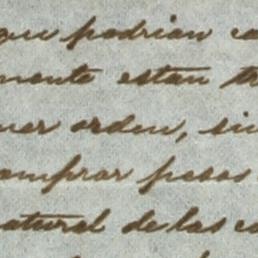 que podrian
mente estan
orden,
comprar pesos
natural de las